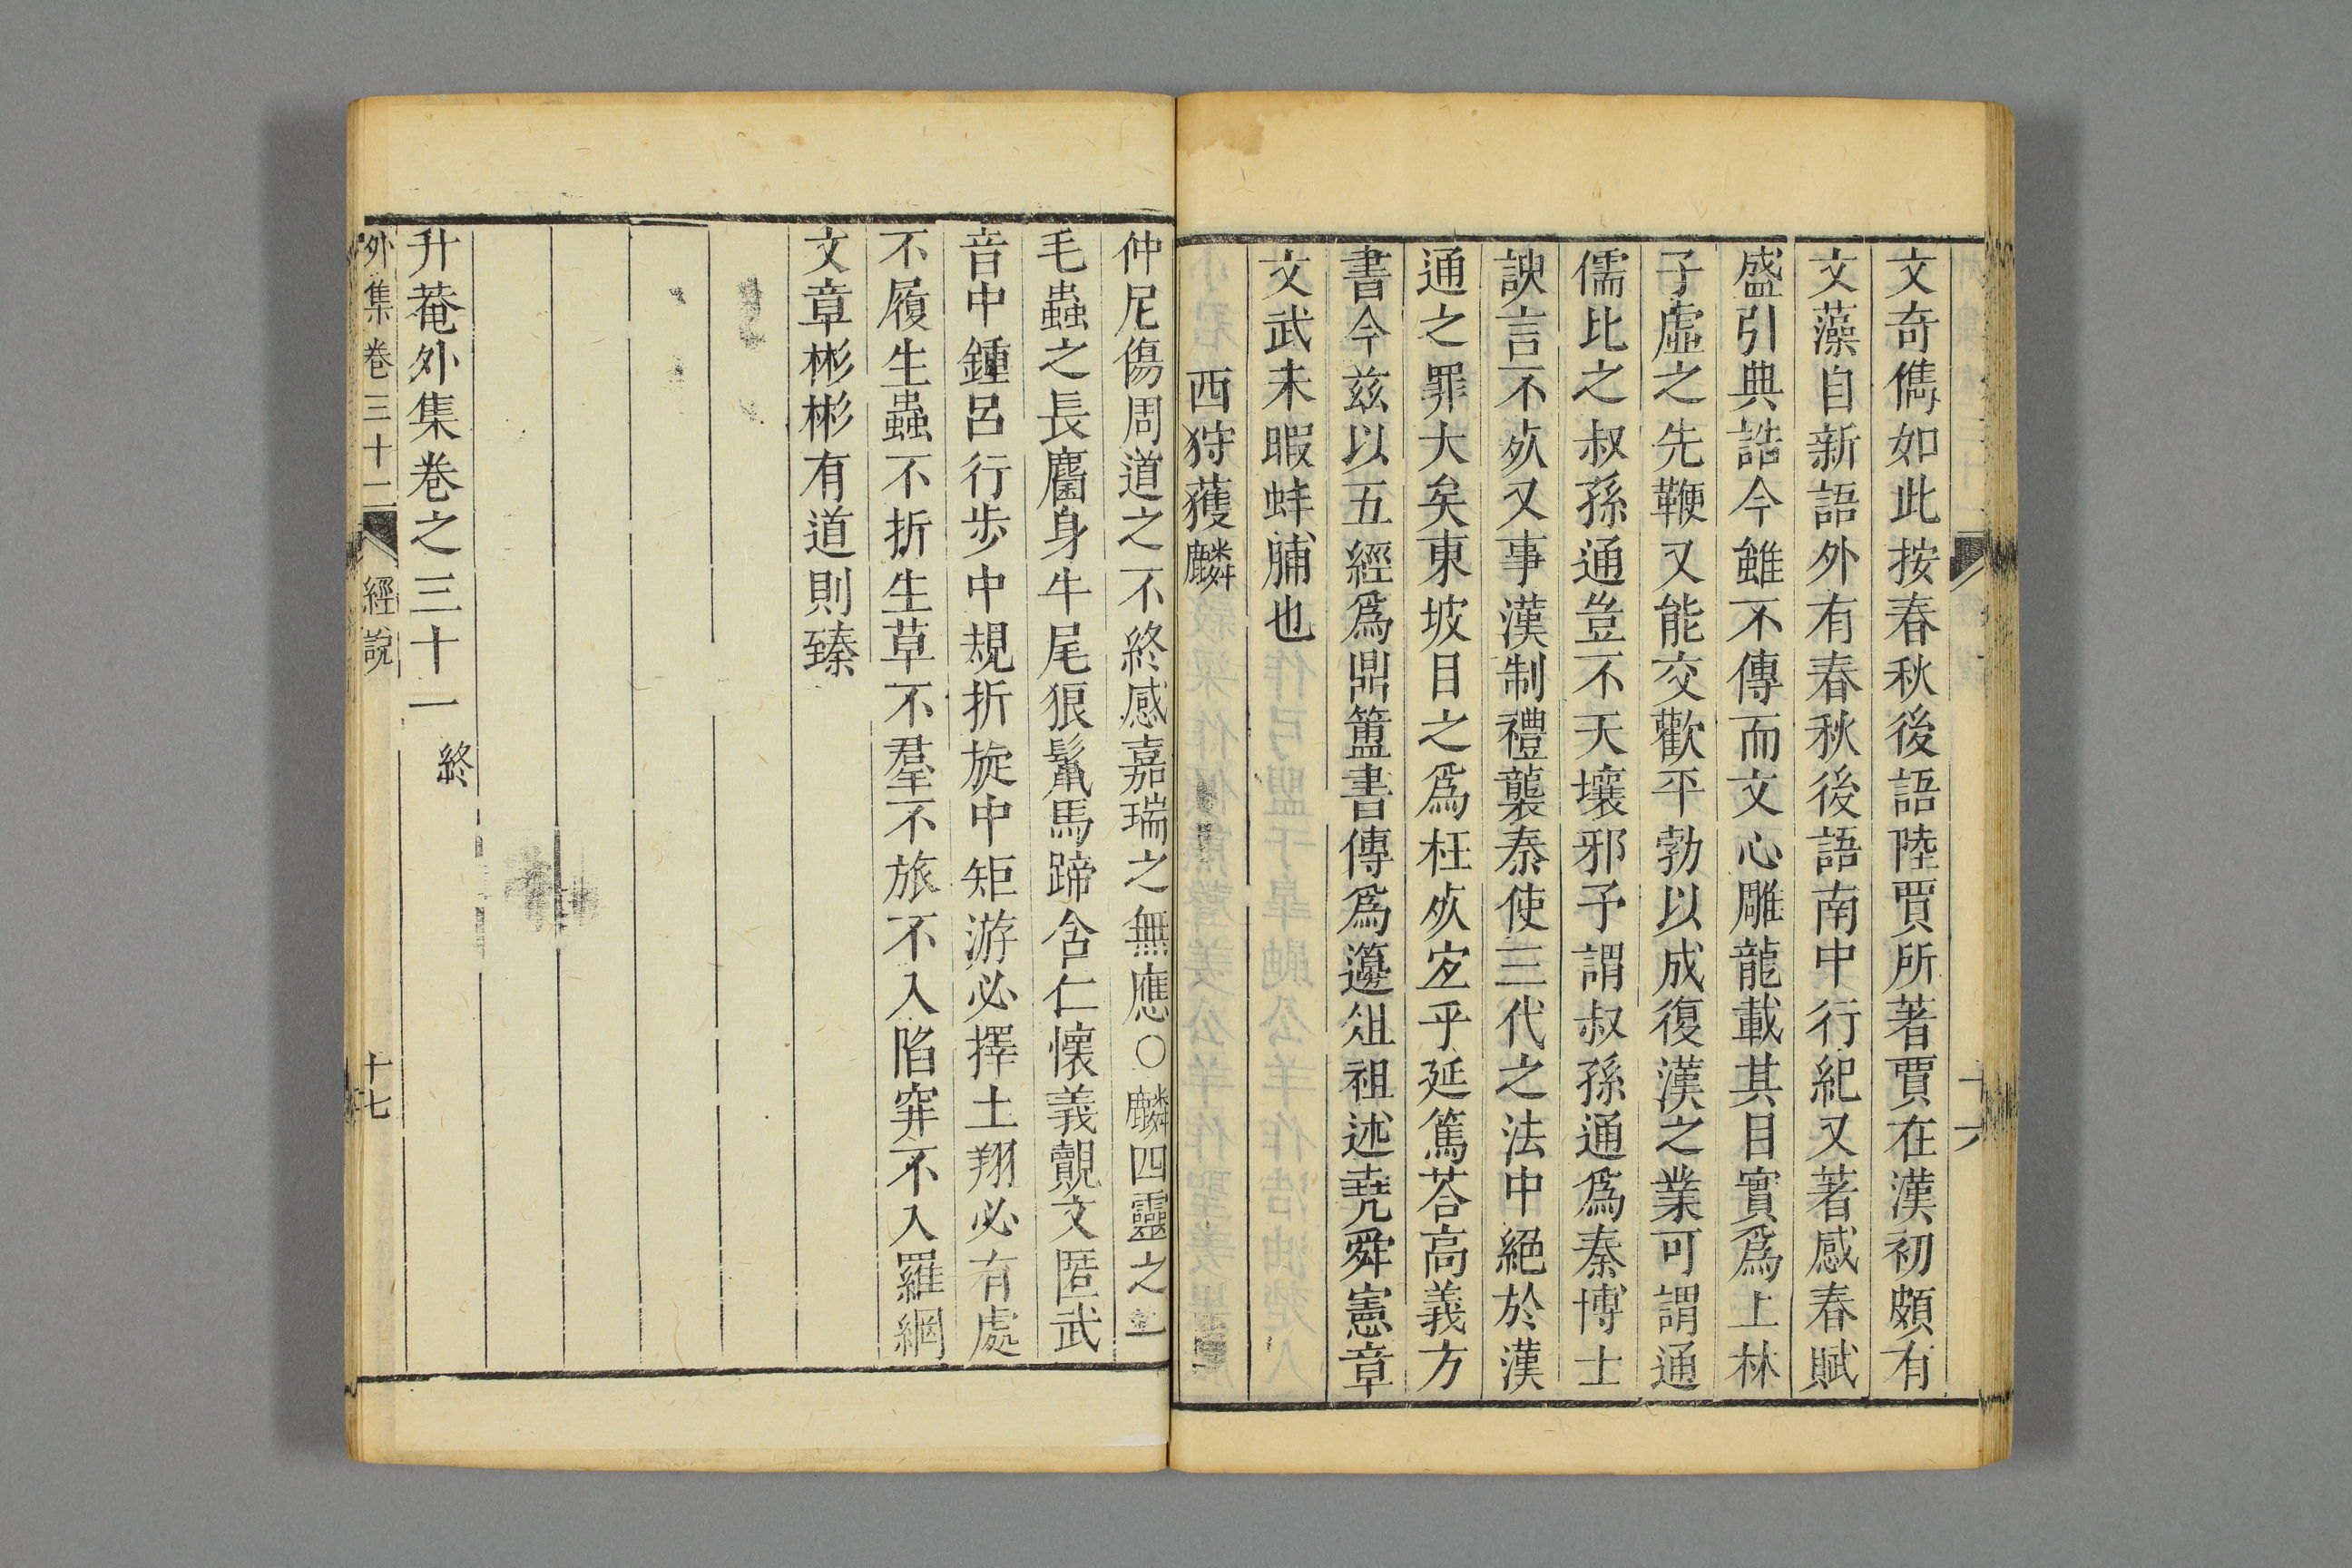 文奇儁如此按春秋後語陸賈所著賈在漢初頗有
文藻自新語外有春秋後語南中行紀又著感春賦
盛引典誥今雖不傳而文心雕龍載其目實爲上林
子虛之先鞭又能交歡平勃以成復漢之業可謂通
儒比之叔孫通豈不天壤邪予謂叔孫通爲秦博士
諛言不㱙又事漢制禮襲秦使三代之法中絕於漢
通之罪大矣東坡目之爲枉㱙宐乎延篤荅高義方
書今兹以五經爲鼎簠書傳爲籩俎祖述堯舜憲章
文武未暇蚌脯也
西狩獲麟
仲尼傷周道之不終感嘉瑞之無應○麟四靈之一
毛蟲之長麕身牛尾狼鬛馬蹄含仁懷義覿文匿武
音中鍾呂行步中規折旋中矩游必擇土翔必有處
不履生蟲不折生草不羣不旅不入陷穽不入羅網
文章彬彬有道則臻
升菴外集卷之三十一 終
外集卷三十二 經說 十七